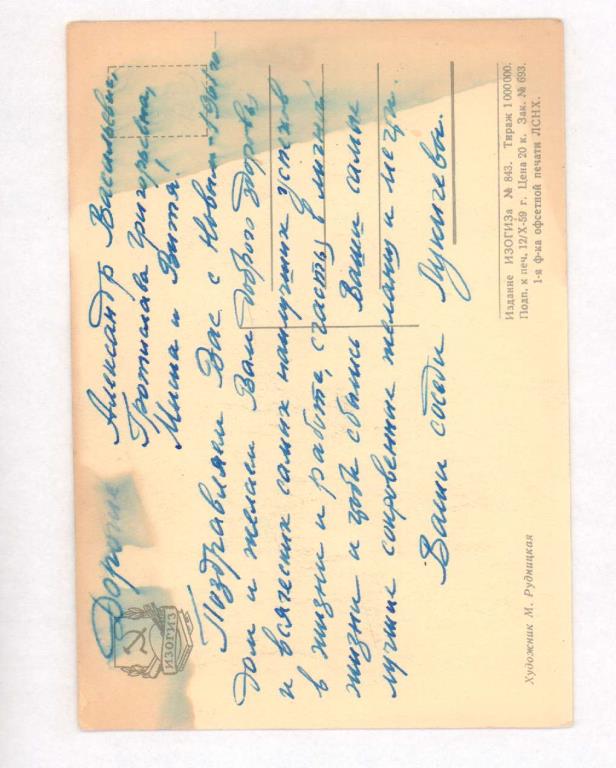 Дорогие Александр Васильевич,
Григорьевна,
Миша и Вита.
Поздравляем Вас с Новым 1961-го
дом и желаем Вам доброго здоровья
и всяческих самых наилучших успехов
в жизни и работе, счастья в личной
жизни и чтоб сбылись Ваши самые
лучшие сокровенные желания и мечты.
Ваши соседи Лукичевы.
ИЗОГИЗ
Художник М. Рудницкая
Издание ИЗОГИЗа № 843. Тираж 1 000 000.
Подп. к печ. 12/X-59 г. Цена 20 к. Зак. № 693.
1-я ф-ка офсетной печати ЛСНХ.